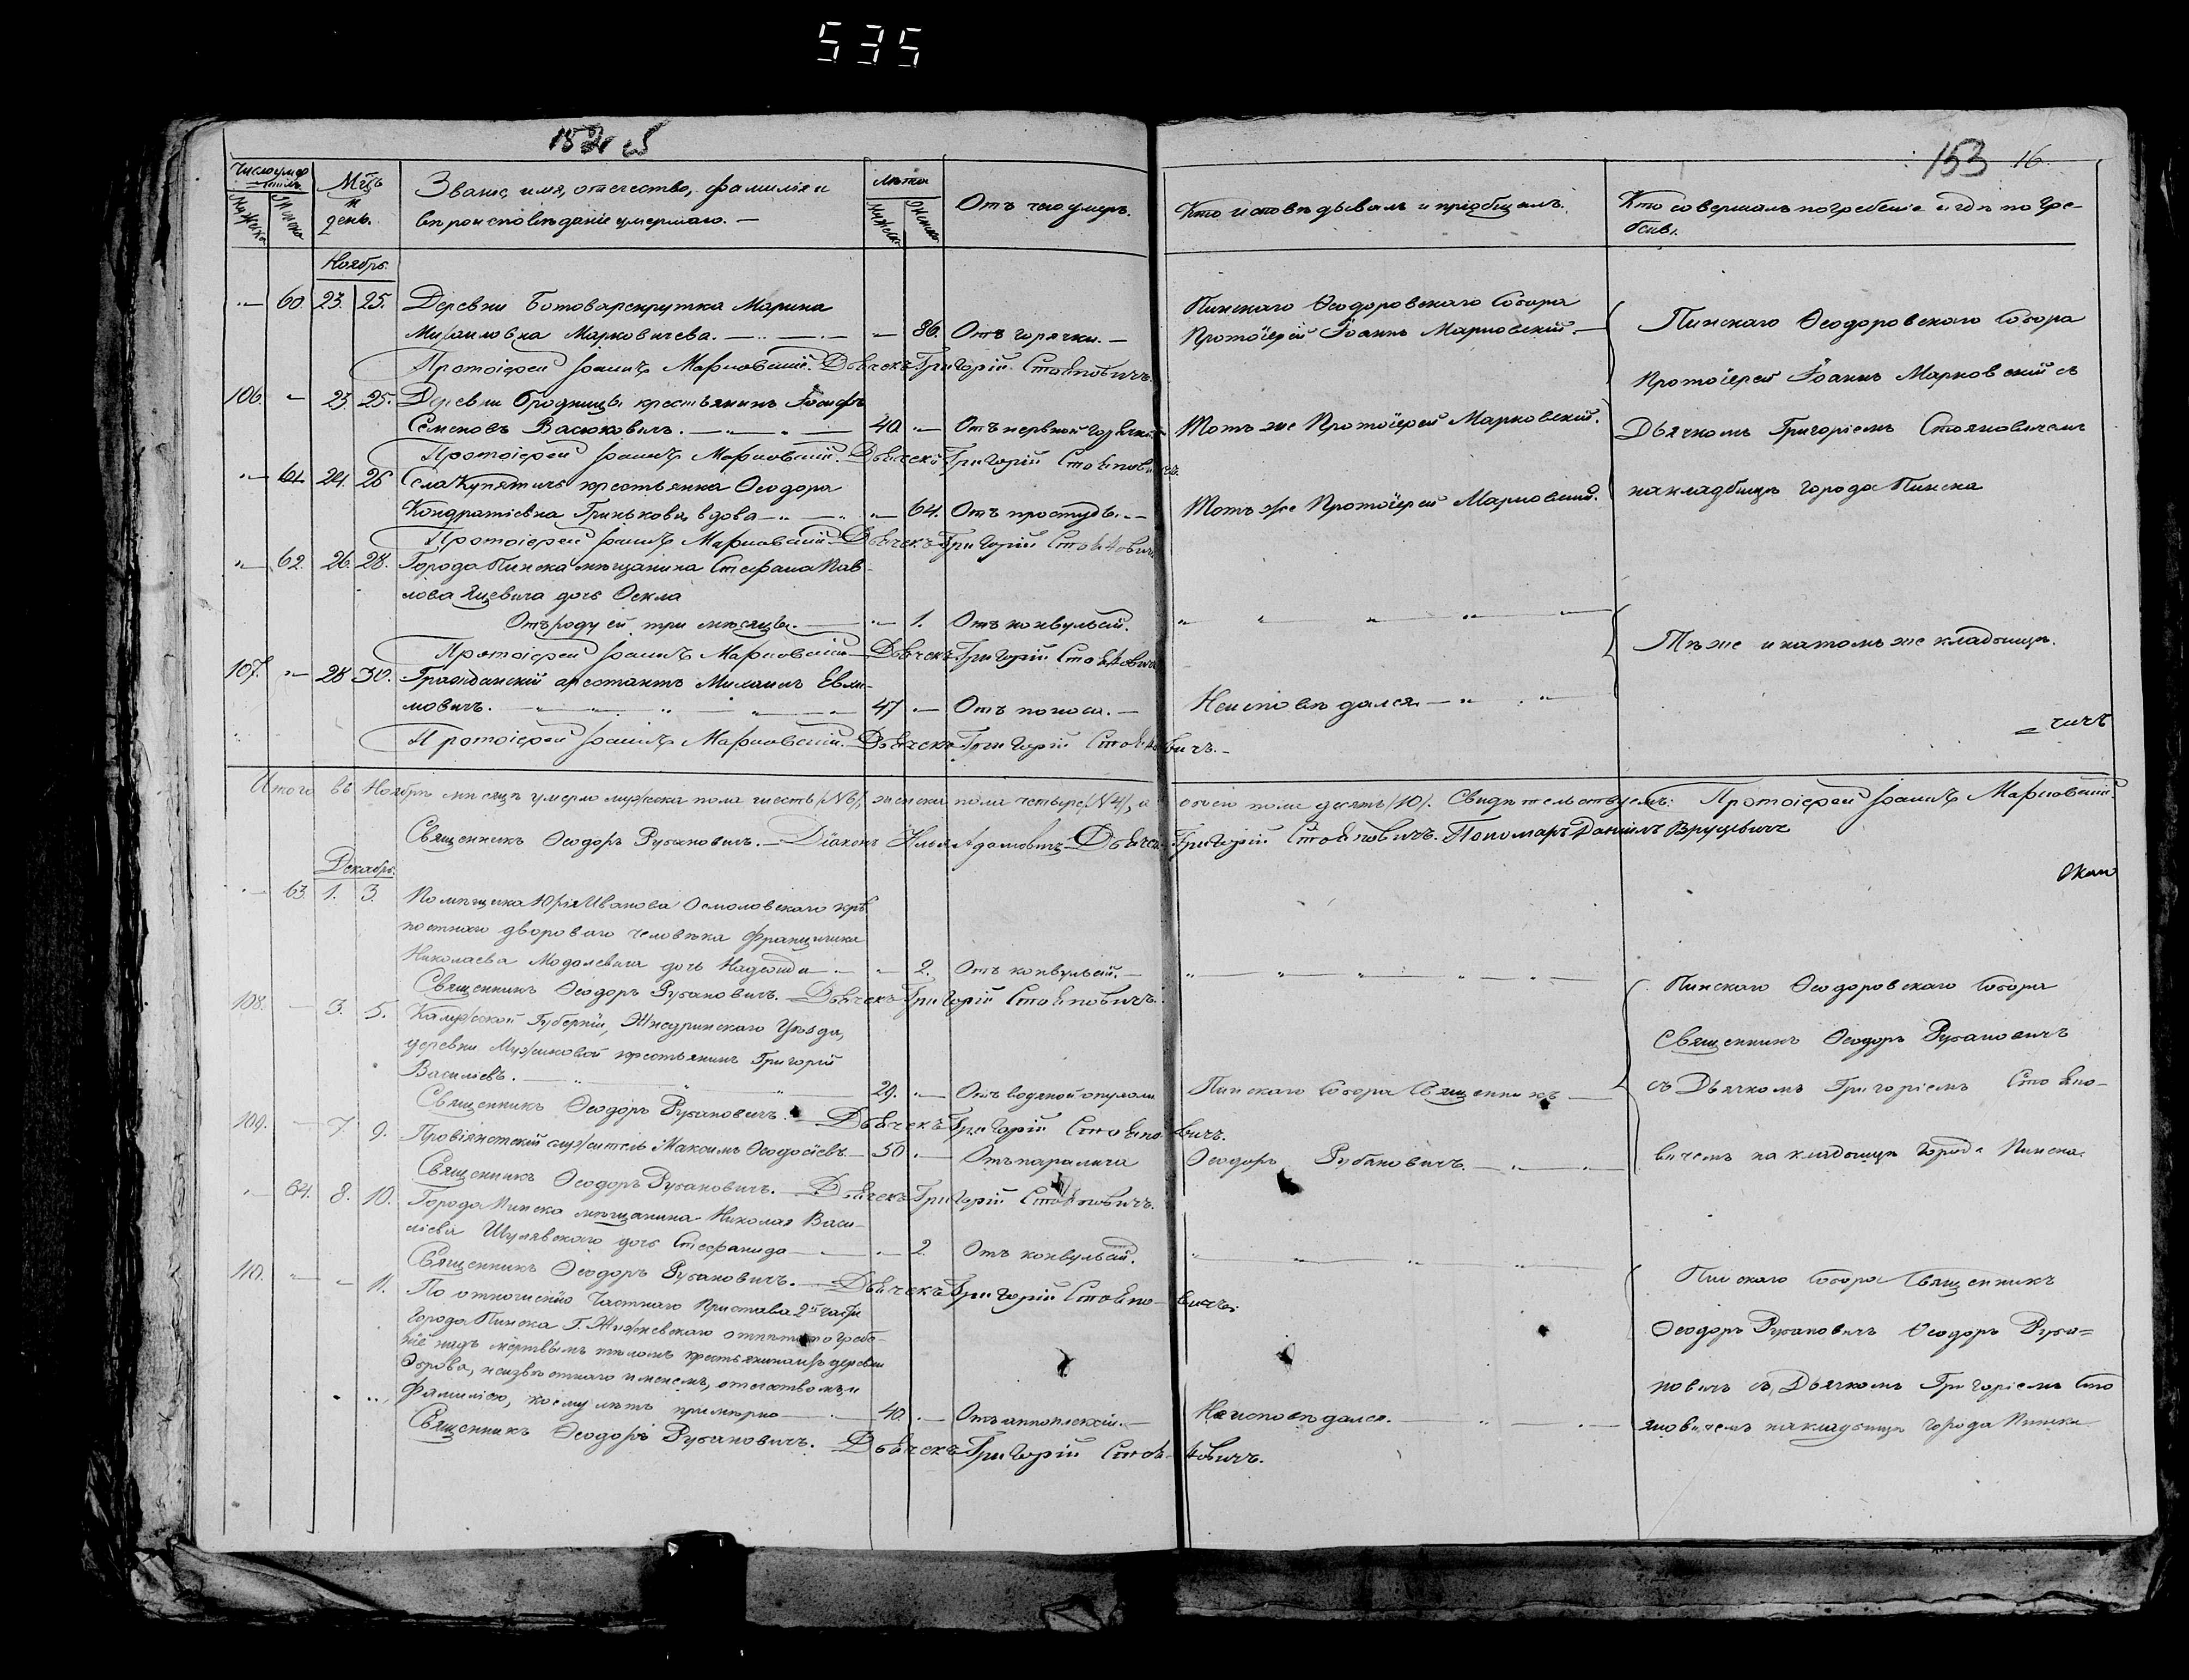 535
153 16.
Число умер
шихъ
Мужска
Женска
Мцъ
и
день.
Званіе, имя, отечество, фамилія и
вѣроисповѣданіе умершаго. —
Лѣта
Мужск.
Женск.
Отъ чего умеръ.
Кто исповѣдывалъ и пріобщалъ.
Кто совершалъ погребеніе и гдѣ погре-
бены.
Ноябрь.
„— 60. 23. 25. Деревни Марина
Михаиловна Марковичева. — — 86. Отъ горячки. —
Пинскаго Ѳеодоровскаго Собора
Протоіерей Іоаннъ Марковскій. —
Протоіерей Іоаннъ Марковскій. Дьячекъ Григорій Стояновичъ.
106. — 23. 25. Деревни Бродницы крестьянинъ Іосифъ
Семеновъ Васюковичъ. — 40. — Отъ нервной горячки. Тотъ же Протоіерей Марковскій.
Протоіерей Іоаннъ Марковскій. Дьячекъ Григорій Стояновичъ.
„— 61. 24. 26 Села Купятичъ крестьянка Ѳеодора
Кондратіевна Гринькова, вдова — „— 64. Отъ простуды. — Тотъ же Протоіерей Марковскій.
Протоіерей Іоаннъ Марковскій. Дьячекъ Григорій Стояновичъ
Пинскаго Ѳеодоровскаго Собора
Протоіерей Іоаннъ Марковскій съ
Дьячкомъ Григоріемъ Стояновичемъ
на кладбищѣ города Пинска
„— 62. 26. 28. Города Пинска мѣщанина Стефана Пав-
лова Яцевича дочь Ѳекла
Отъ роду ей три мѣсяцы. — „— 1. Отъ конвульсій.
Протоіерей Іоаннъ Марковскій. Дьячекъ Григорій Стояновичъ
107. „— 28 30. Гражданскій арестантъ Михаилъ Евли-
мовичъ. — 47 „— Отъ поноса. — Неисповѣдался. —
Протоіерей Іоаннъ Марковскій. — Дьячекъ Григорій Стояновичъ. —
Тѣ же и на томъ же кладбищѣ.
Итого въ Ноябрѣ мѣсяцѣ умерло мужска пола шесть (№6), женска пола четыре (№4), а обоего пола десять (10). Свидѣтельствуемъ: Протоіерей Іоаннъ Марковскій.
Священникъ Ѳеодоръ Рубановичъ. — Діаконъ Илья Адамовичъ — Дьячекъ Григорій Стояновичъ. Пономарь Даніилъ Вруцевичъ
Декабрь.
„— 63. 1. 3. Помѣщика Юрія Иванова Осмоловскаго крѣ-
постнаго двороваго человѣка Францишка
Николаева Модолевича дочь Надежда — — 2. Отъ конвульсій. —
Священникъ Ѳеодоръ Рубановичъ. — Дьячекъ Григорій Стояновичъ.
108. — 3. 5. Калужской Губерніи, Жиздринскаго Уѣзда,
деревни Мужиковой крестьянинъ Григорій
Василіевъ. — 29. „— Отъ водяной опухоли Пинскаго Собора Священникъ —
Священникъ Ѳеодоръ Рубановичъ. — Дьячекъ Григорій Стояновичъ.
109. — 7. 9. Провіянтскій служитель Максимъ Ѳеодосіевъ. — 50 — Отъ паралича Ѳеодоръ Рубановичъ. —
Священникъ Ѳеодоръ Рубановичъ. — Дьячекъ Григорій Стояновичъ.
Пинскаго Ѳеодоровскаго Собора
Священникъ Ѳеодоръ Рубановичъ
съ Дьячкомъ Григоріемъ Стояно-
вичемъ на кладбищѣ города Пинска
„— 64. 8. 10. Города Пинска мѣщанина Николая Васи-
ліева Шулявскаго дочь Стефанида — „— 2. Отъ конвульсій.
Священникъ Ѳеодоръ Рубановичъ. — Дьячекъ Григорій Стояно-вичъ.
110. „— „ 11. По отношенію Частнаго Пристава 2й части
города Пинска Г. отпѣто погребе-
ніе надъ мертвымъ тѣломъ крестьянина изъ деревни
Озрова, неизвѣстнаго именемъ, отечествомъ и
фамиліею, коему лѣтъ примѣрно — 40. „— Отъ апоплексіи. — Не исповѣдался. —
Священникъ Ѳеодоръ Рубановичъ. Дьячекъ Григорій Стояновичъ.
Пинскаго Собора Священникъ
Ѳеодоръ Рубановичъ Ѳеодоръ Руба=
новичъ съ Дьячкомъ Григоріемъ Сто
яновичемъ на кладбищѣ города Пинска